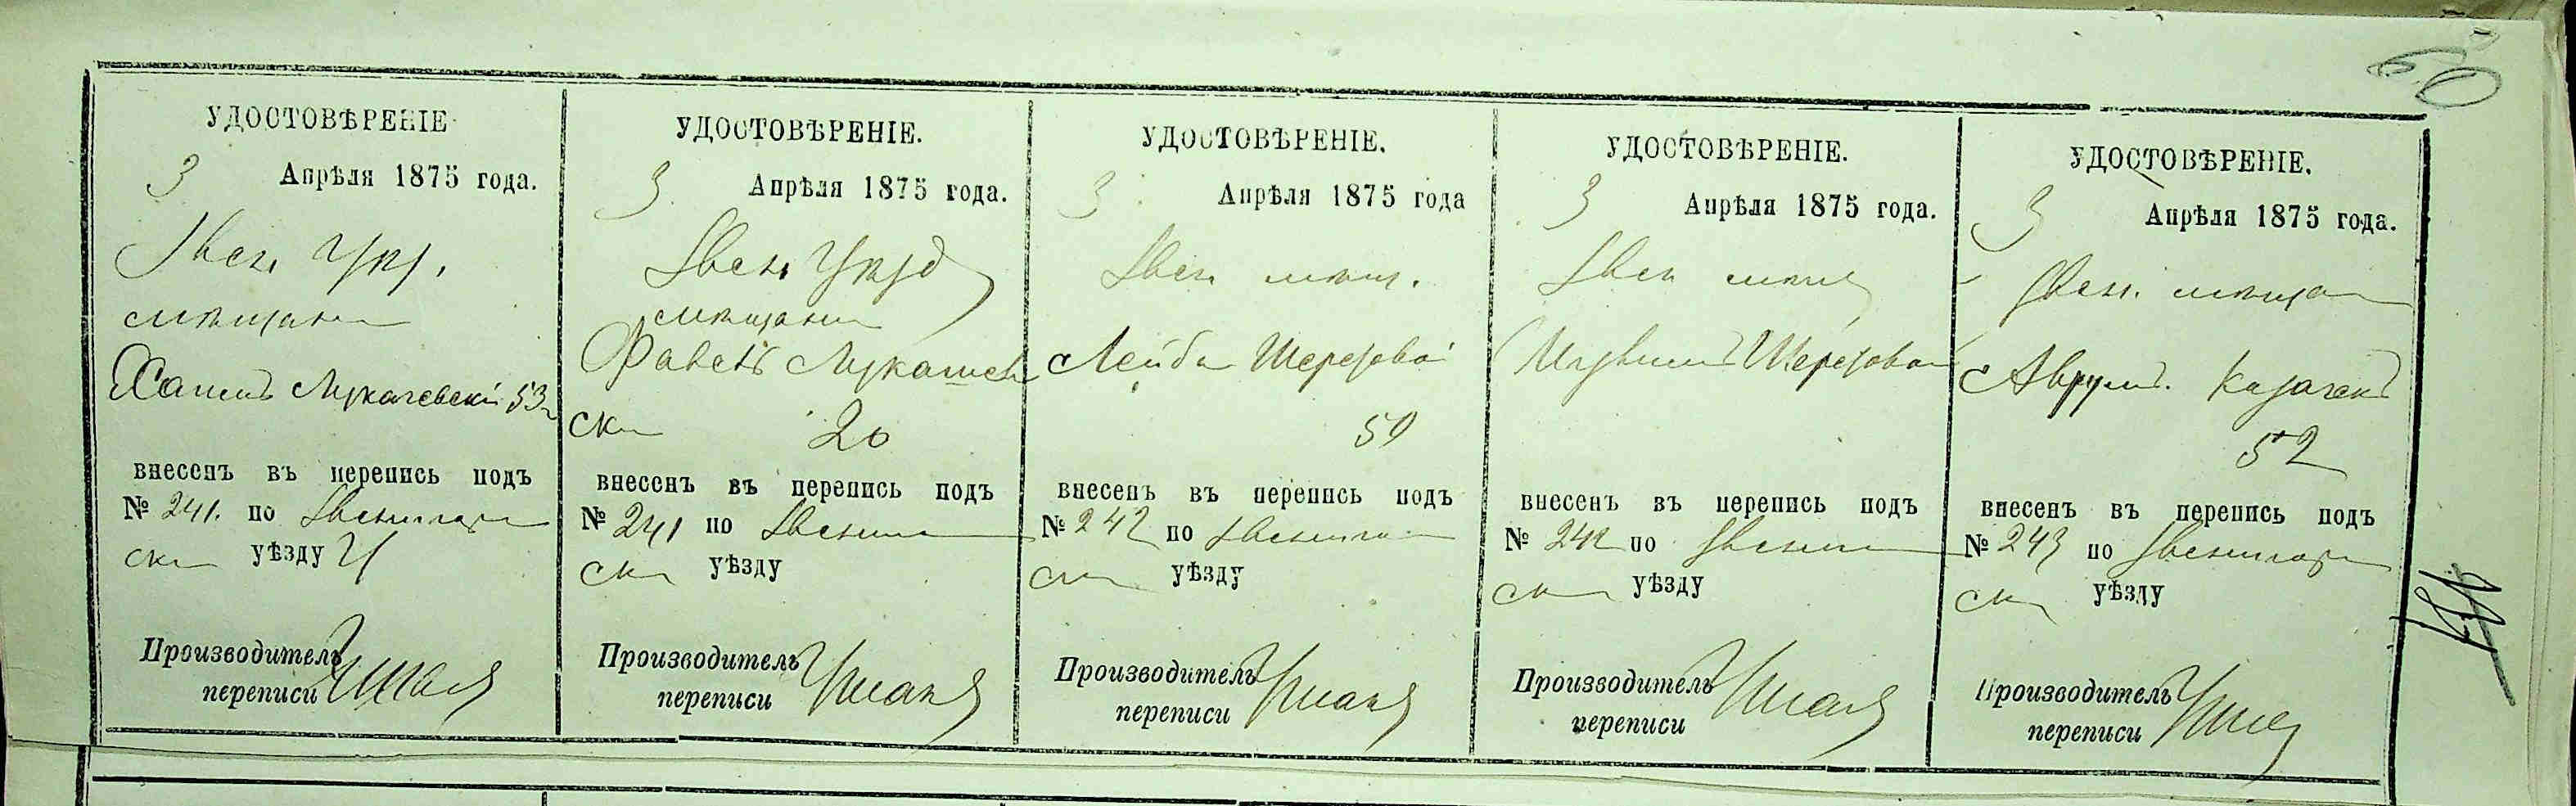 60
УДОСТОВѢРЕНІЕ
3 Апрѣля 1875 года.
Звен.
мѣщанин
Хаимъ Лукачевскій 53
внесенъ въ перепись подъ
№ 241. по Звенигород
ск уѣзду
Производитель
переписи
УДОСТОВѢРЕНІЕ.
3 Апрѣля 1875 года.
Звен.
мѣщанин
Лукашев
ск 20
внесенъ въ перепись подъ
№ 241 по Звениг
ск уѣзду
Производитель
переписи
УДОСТОВѢРЕНІЕ.
3 Апрѣля 1875 года
Звен. мѣщ.
Лейба Шерезовой
59
внесенъ въ перепись подъ
№ 242 по Звениго
ск уѣзду
Производитель
переписи
УДОСТОВѢРЕНІЕ.
3 Апрѣля 1875 года.
Звен мѣщ
Шерезовой
внесенъ въ перепись подъ
№ 242 по Звениг
ск уѣзду
Производитель
переписи
УДОСТОВѢРЕНІЕ.
3 Апрѣля 1875 года.
Звен. мѣщан
Аврумъ. Казачек
52
внесенъ въ перепись подъ
№ 243 по Звенигор
ск уѣзду
Производитель
переписи